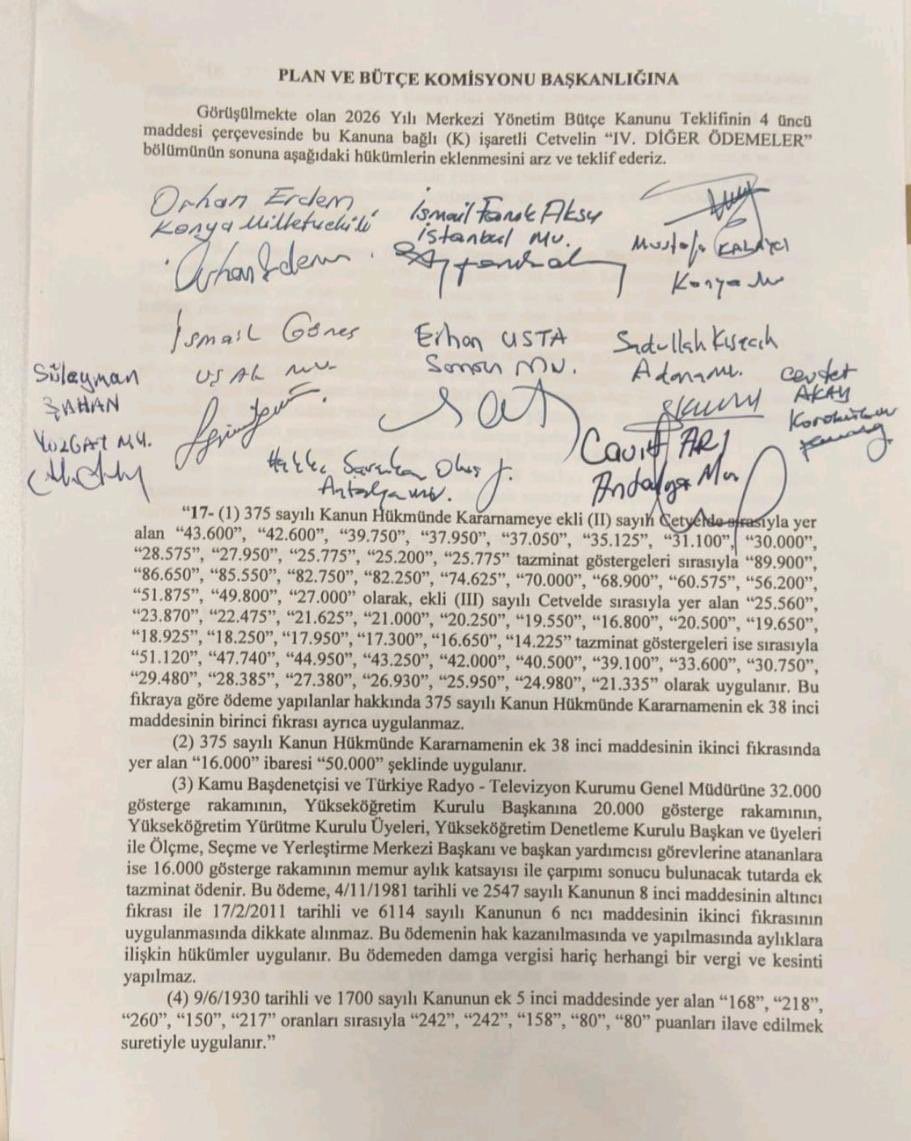 PLAN VE BÜTÇE KOMİSYONU BAŞKANLIĞINA
Görüşülmekte olan 2026 Yılı Merkezi Yönetim Bütçe Kanunu Teklifinin 4 üncü
maddesi çerçevesinde bu Kanuna bağlı (K) işaretli Cetvelin “IV. DİĞER ÖDEMELER”
bölümünün sonuna aşağıdaki hükümlerin eklenmesini arz ve teklif ederiz.
Orhan Erdem
Konya Milletvekili
Orhan Erdem
İsmail Faruk Aksu
İstanbul Mv.
Mustafa KALAYCI
Konya Mv
İsmail Güneş
UŞAK mv.
Erhan USTA
Samsun Mv.
Sadullah Kısacık
Adana mv.
Süleyman
ŞAHAN
YOZGAT MV.
Cevdet
AKAY
Karabük
Cavit ARI
Antalya Mv
Hakkı Saruhan Oluç
Antalya mv.
“17- (1) 375 sayılı Kanun Hükmünde Kararnameye ekli (II) sayılı Cetvelde sırasıyla yer
alan “43.600”, “42.600”, “39.750”, “37.950”, “37.050”, “35.125”, “31.100”, “30.000”,
“28.575”, “27.950”, “25.775”, “25.200”, “25.775” tazminat göstergeleri sırasıyla “89.900”,
“86.650”, “85.550”, “82.750”, “82.250”, “74.625”, “70.000”, “68.900”, “60.575”, “56.200”,
“51.875”, “49.800”, “27.000” olarak, ekli (III) sayılı Cetvelde sırasıyla yer alan “25.560”,
“23.870”, “22.475”, “21.625”, “21.000”, “20.250”, “19.550”, “16.800”, “20.500”, “19.650”,
“18.925”, “18.250”, “17.950”, “17.300”, “16.650”, “14.225” tazminat göstergeleri ise sırasıyla
“51.120”, “47.740”, “44.950”, “43.250”, “42.000”, “40.500”, “39.100”, “33.600”, “30.750”,
“29.480”, “28.385”, “27.380”, “26.930”, “25.950”, “24.980”, “21.335” olarak uygulanır. Bu
fıkraya göre ödeme yapılanlar hakkında 375 sayılı Kanun Hükmünde Kararnamenin ek 38 inci
maddesinin birinci fıkrası ayrıca uygulanmaz.
(2) 375 sayılı Kanun Hükmünde Kararnamenin ek 38 inci maddesinin ikinci fıkrasında
yer alan “16.000” ibaresi “50.000” şeklinde uygulanır.
(3) Kamu Başdenetçisi ve Türkiye Radyo - Televizyon Kurumu Genel Müdürüne 32.000
gösterge rakamının, Yükseköğretim Kurulu Başkanına 20.000 gösterge rakamının,
Yükseköğretim Yürütme Kurulu Üyeleri, Yükseköğretim Denetleme Kurulu Başkan ve üyeleri
ile Ölçme, Seçme ve Yerleştirme Merkezi Başkanı ve başkan yardımcısı görevlerine atananlara
ise 16.000 gösterge rakamının memur aylık katsayısı ile çarpımı sonucu bulunacak tutarda ek
tazminat ödenir. Bu ödeme, 4/11/1981 tarihli ve 2547 sayılı Kanunun 8 inci maddesinin altıncı
fıkrası ile 17/2/2011 tarihli ve 6114 sayılı Kanunun 6 ncı maddesinin ikinci fıkrasının
uygulanmasında dikkate alınmaz. Bu ödemenin hak kazanılmasında ve yapılmasında aylıklara
ilişkin hükümler uygulanır. Bu ödemeden damga vergisi hariç herhangi bir vergi ve kesinti
yapılmaz.
(4) 9/6/1930 tarihli ve 1700 sayılı Kanunun ek 5 inci maddesinde yer alan “168”, “218”,
“260”, “150”, “217” oranları sırasıyla “242”, “242”, “158”, “80”, “80” puanları ilave edilmek
suretiyle uygulanır.”